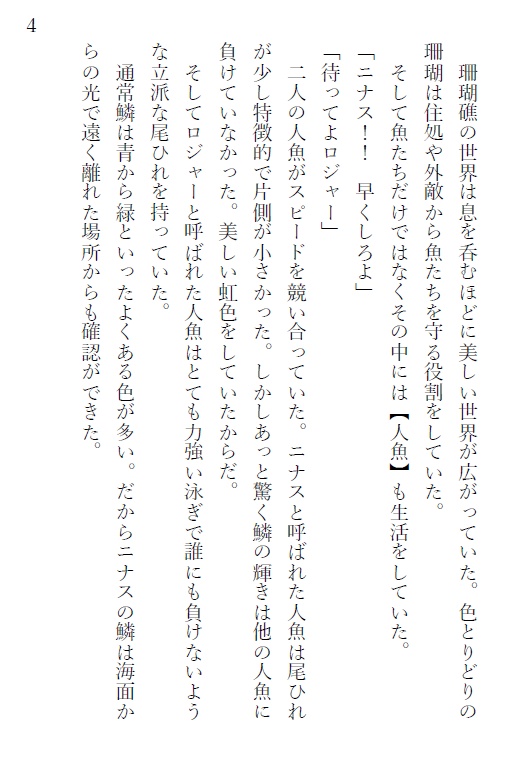 4
　珊瑚礁の世界は息を呑むほどに美しい世界が広がっていた。色とりどりの
珊瑚は住処や外敵から魚たちを守る役割をしていた。
　そして魚たちだけではなくその中には【人魚】も生活をしていた。
「ニナス！！　早くしろよ」
「待ってよロジャー」
　二人の人魚がスピードを競い合っていた。ニナスと呼ばれた人魚は尾ひれ
が少し特徴的で片側が小さかった。しかしあっと驚く鱗の輝きは他の人魚に
負けていなかった。美しい虹色をしていたからだ。
　そしてロジャーと呼ばれた人魚はとても力強い泳ぎで誰にも負けないよう
な立派な尾ひれを持っていた。
　通常鱗は青から緑といったよくある色が多い。だからニナスの鱗は海面か
らの光で遠く離れた場所からも確認ができた。